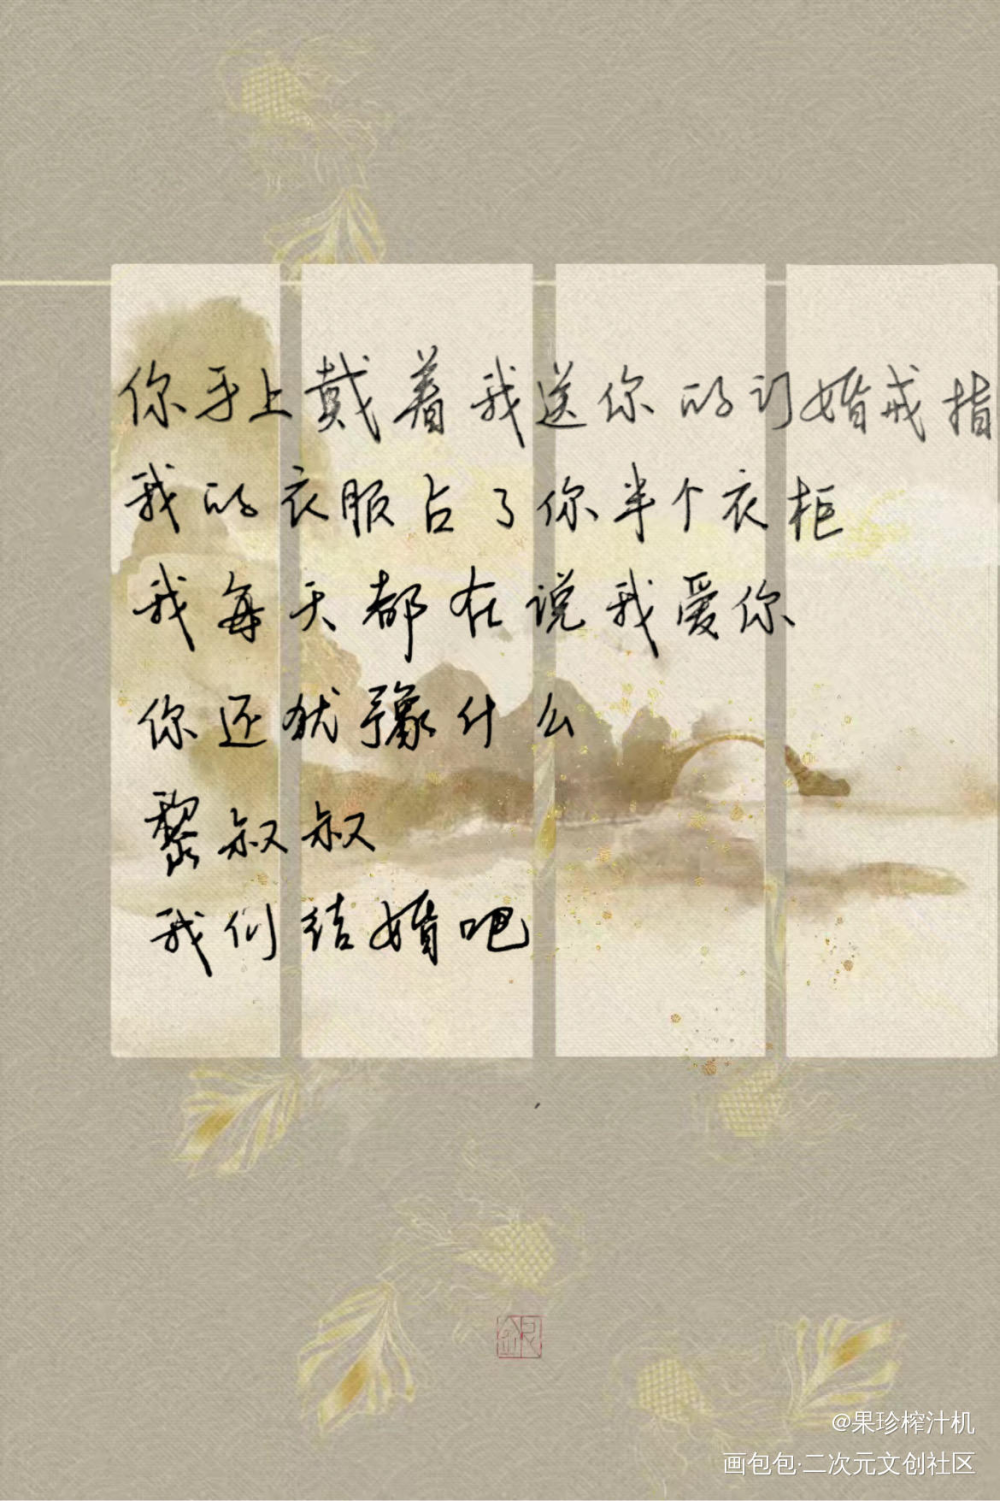 你手上戴着我送你的订婚戒指
我的衣服占了你半个衣柜
我每天都在说我爱你
你还犹豫什么
黎叔叔
我们结婚吧
@果珍榨汁机
画包包·二次元文创社区